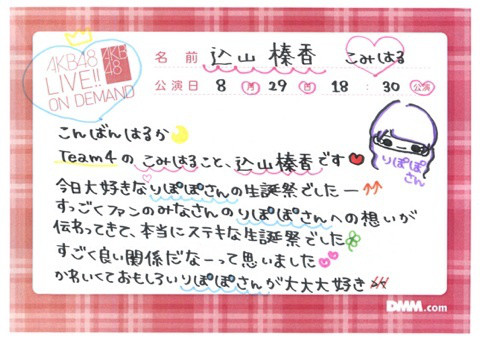 AKB48
LIVE!!
ON DEMAND
AKB
48
名前 込山榛香 こみはる
公演日 8 月 29 日 18 : 30 公演
こんばんはるか
Team4の こみはること、込山榛香です
りぽぽ
さん
今日大好きなりぽぽさんの生誕祭でしたー↑↑
すっごくファンのみなさんのりぽぽさんへの想いが
伝わってきて、本当にステキな生誕祭でした
すごく良い関係だなーって思いました
かわいくておもしろいりぽぽさんが大大大好き
DMM.com